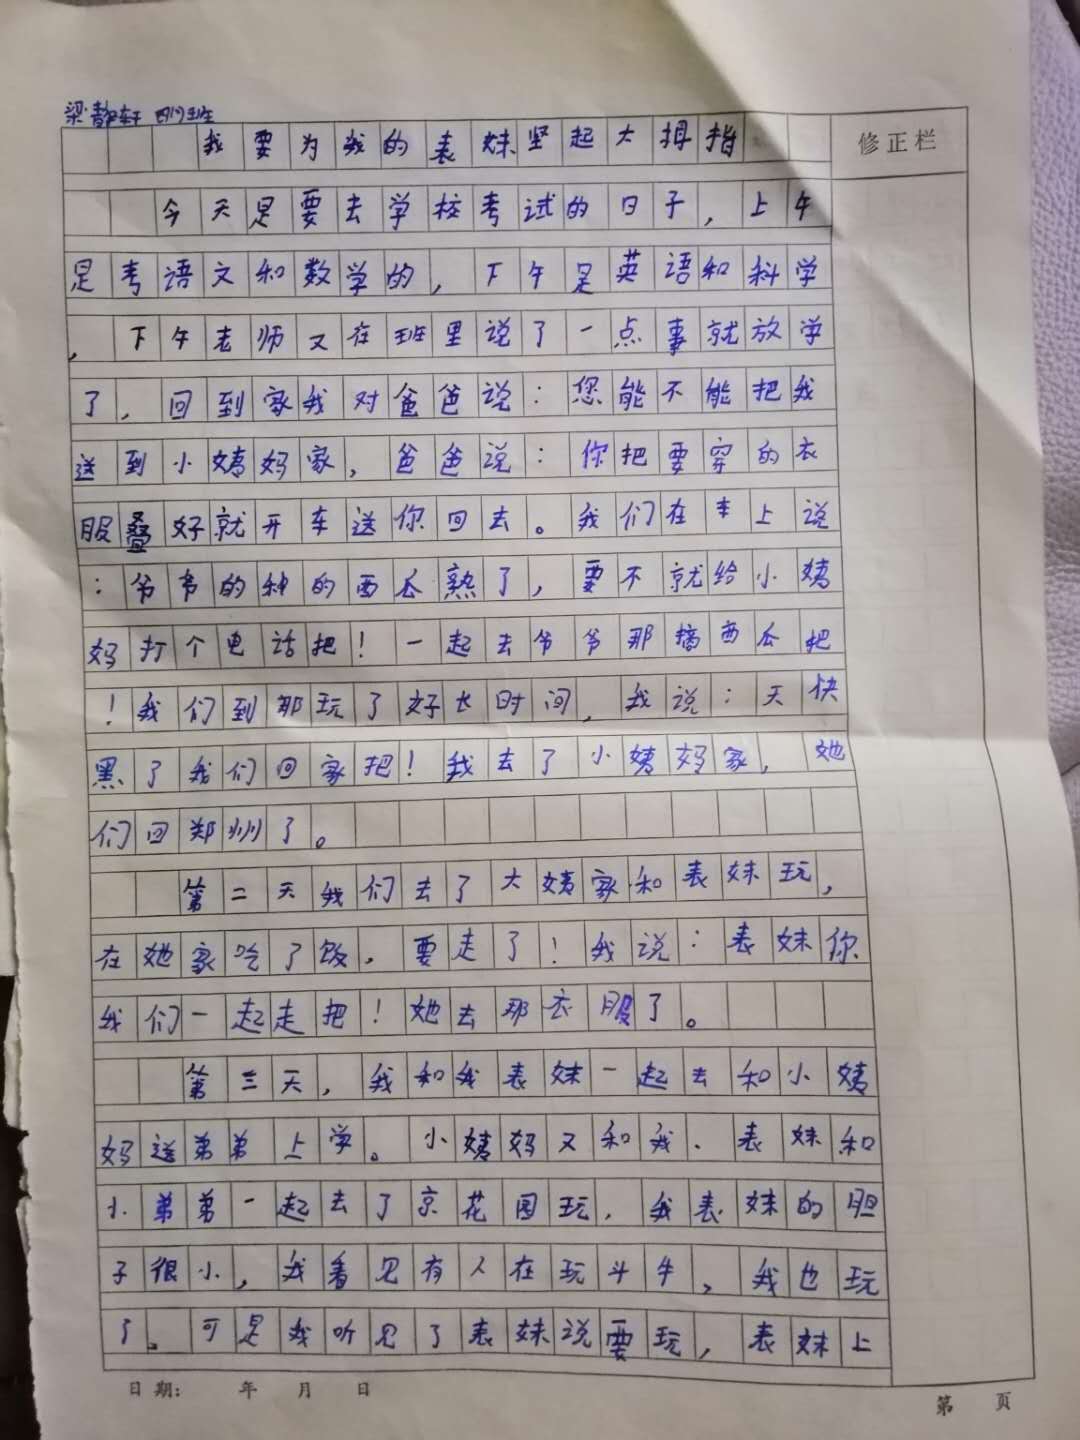 梁静轩 四(1)班
我要为我的表妹坚起大拇指
修正栏
今天是要去学校考试的日子，上午
是考语文和数学的，下午是英语和科学
，下午老师又在班里说了一点事就放学
了，回到家我对爸爸说：您能不能把我
送到小姨妈家，爸爸说：你把要穿的衣
服叠好就开车送你回去。我们在车上说
：爷爷的种的西瓜熟了，要不就给小姨
妈打个电话把！一起去爷爷那摘西瓜把
！我们到那玩了好长时间，我说：天快
黑了我们回家把！我去了小姨妈家，她
们回郑州了。
第二天我们去了大姨家和表妹玩，
在她家吃了饭，要走了！我说：表妹你
我们一起走把！她去那衣服了。
第三天，我和我表妹一起去和小姨
妈送弟弟上学。小姨妈又和我、表妹和
小弟弟一起去了京花园玩，我表妹的胆
子很小，我看见有人在玩斗牛，我也玩
了。可是我听见了表妹说要玩，表妹上
日期： 年 月 日
第 页